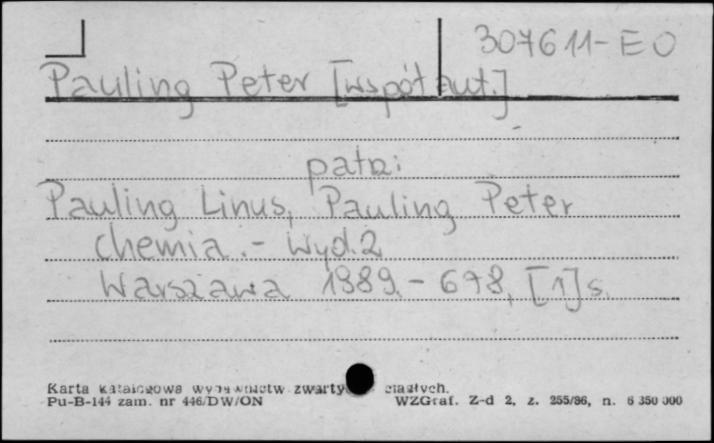 307611-EO
Pauling Peter [współaut.]
patrz:
Pauling Linus, Pauling Peter
Chemia.- Wyd.2
Warszawa 1989.- 678, [1]s.
Karta katalogowa wydawnictw zwartych ciągłych.
Pu-B-144 zam. nr 446/DW/ON WZGraf. Z-d 2, z. 255/86, n. 6 350 000